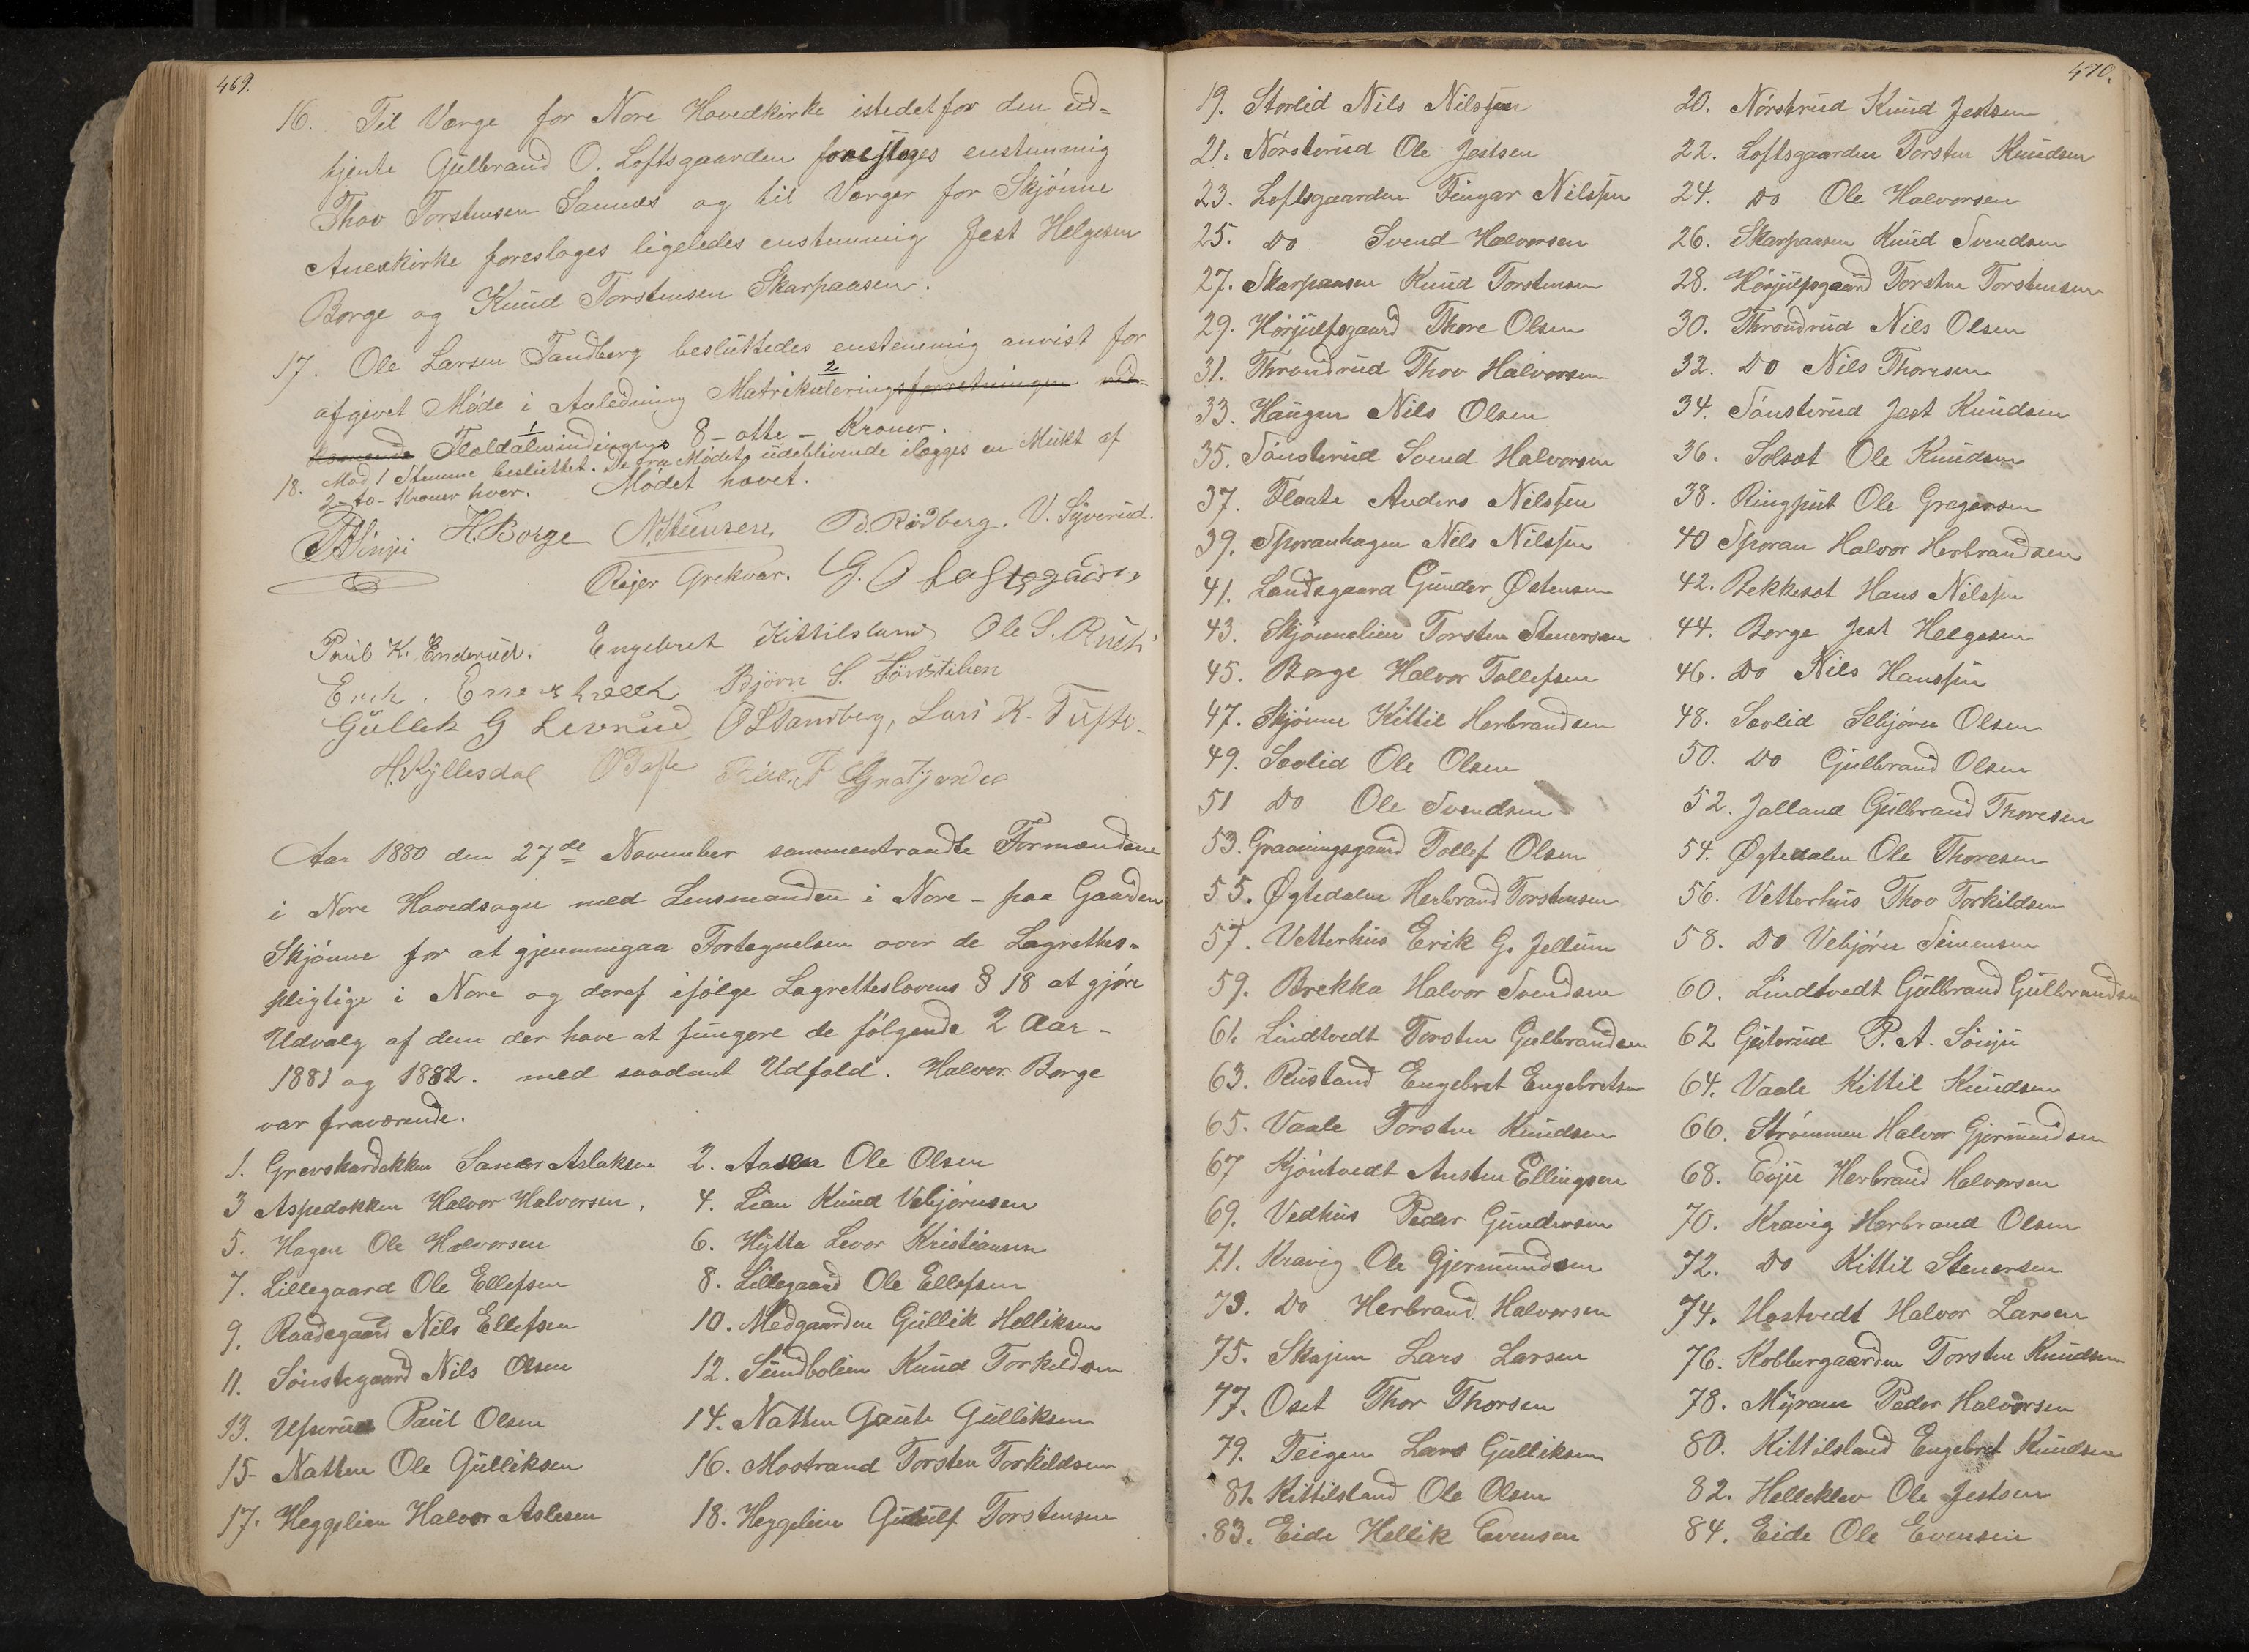 469.
16. Til Værge for Nore Hovedkirke istedetfor den ud=
tjente Gulbrand O. Loftsgaarden foresloges enstemmig
Thov Torstensen Sannes og til Værger for Skjønne
Anexkirke foresloges ligeledes enstemmig Jest Helgesen
Borge og Knud Torstensen Skarpaasen.
17. Ole Larsen Tandberg besluttedes enstemmig anvist for
afgivet Møde i Anledning Matrikuleringsforretningen ved=
Floldalmindingens 8 - otte - Kroner.
18. Mod 1 Stemme besluttet. De fra Mødet udeblivende ilægges en Mulkt af
2 - to - Kroner hver. Mødet hævet.
H. Borge P. Rødberg. V. Syverud.
G. O Loftsgaarden
Paul K. Enderud. Engebret Kittilsland Ole S. Rusti
Erik Bjørn S.
Gullek G Levrud O L Tandberg, Lars K. Tufte.
H. Kyllesdal O Tufte
Aar 1880 den 27de November sammentraadte Formændene
i Nore Hovedsogn med Lensmanden i Nore - paa Gaarden
Skjønne for at gjennemgaa Fortegnelsen over de Lagrettes-
pligtige i Nore og deraf ifølge Lagretteslovens § 18 at gjøre
Udvalg af dem der have at fungere de følgende 2 Aar -
1881 og 1882. med saadant Udfald. Halvor Borge
var fraværende.
1. Grevskardokken Sander Aslaksen 2. Aasen Ole Olsen
3 Aspedokken Halvor Halvorsen. 4. Lien Knud Vebjørnsen
5. Hagen Ole Halvorsen 6. Hytta Levor Kristiansen
7. Lillegaard Ole Ellefsen 8. Lillegaard Ole Ellefsen
9. Raadegaard Nils Ellefsen 10. Medgaarden Gullik Helliksen
11. Sønstegaard Nils Olsen 12. Sundbolien Knud Torkildsen
13. Uperud Paul Olsen 14. Natten Gaute Gulliksen
15- Natten Ole Gulliksen 16. Mostrand Torsten Torkildsen
17. Heggelien Halvor Aslesen 18. Heggelien Gutulf Torstensen
470.
19. Storlid Nils Nilssen 20. Nørsterud Knud Jestsen
21. Nørsterud Ole Jestsen 22. Loftsgaarden Torsten Knudsen
23. Loftsgaarden Fingar Nilssen 24. Do Ole Halvorsen
25. Do Svend Halvorsen 26. Skarpaasen Knud Svendsen
27. Skarpaasen Knud Torstensen 28. Hørjulfsgaard Torsten Torstensen
29. Hørjulfsgaard Thore Olsen 30. Throndrud Nils Olsen
31. Throndrud Thov Halvorsen 32. Do Nils Thoresen
33. Haugen Nils Olsen 34. Sønsterud Jest Knudsen
35. Sønsterud Svend Halvorsen 36. Solsøt Ole Knudsen
37. Floate Anders Nilssen 38. Ringput Ole Gregersen
39. Sporanhagen Nils Nilssen 40 Sporan Halvor Herbrandsen
41. Landsgaard Gunder Østensen 42. Bekkesøt Hans Nilssen
43. Skjønnelien Torsten Stenersen 44. Borge Jest Helgesen
45. Borge Halvor Tollefsen 46. Do Nils Hanssen
47. Skjønne Kittil Herbrandsen 48. Sævlid Sebjørn Olsen
49. Sævlid Ole Olsen 50. Do Gulbrand Olsen
51 Do Ole Svendsen 52. Jalland Gulbrand Thoresen
53. Gravningsgaard Tollef Olsen 54. Øgtedalen Ole Thoresen
55. Øgtedalen Herbrand Torstensen 56. Vetterhus Thov Torkildsen
57. Vetterhus Erik G. Jellum 58. Do Vebjørn Simensen
59. Brekka Halvor Svendsen 60. Lindtvedt Gulbrand Gulbrandsen
61. Lindtvedt Torsten Gulbrandsen 62 Guterud P. A. Sønju
63. Rusland Engebret Engebretsen 64. Vaale Kittil Knudsen
65. Vaale Torsten Knudsen 66. Strømmen Halvor Gjermundsen
67 Kjøntvedt Austen Ellingsen 68. Evju Herbrand Halvorsen
69. Vedhus Peder Gundersen 70. Kravig Herbrand Olsen
71. Kravig Ole Gjermundsen 72. Do Kittil Stenersen
73. Do Herbrand Halvorsen 74. Hostvedt Halvor Larsen
75. Skajem Lars Larsen 76. Kobbergaarden Torsten Knudsen
77. Oset Thor Thorsen 78. Myran Peder Halvorsen
79. Teigen Lars Gulliksen 80. Kittilsland Engebret Knudsen
81. Kittilsland Ole Olsen 82. Helleklev Ole Jestsen
83. Eide Hellik Evensen 84. Eide Ole Evensen